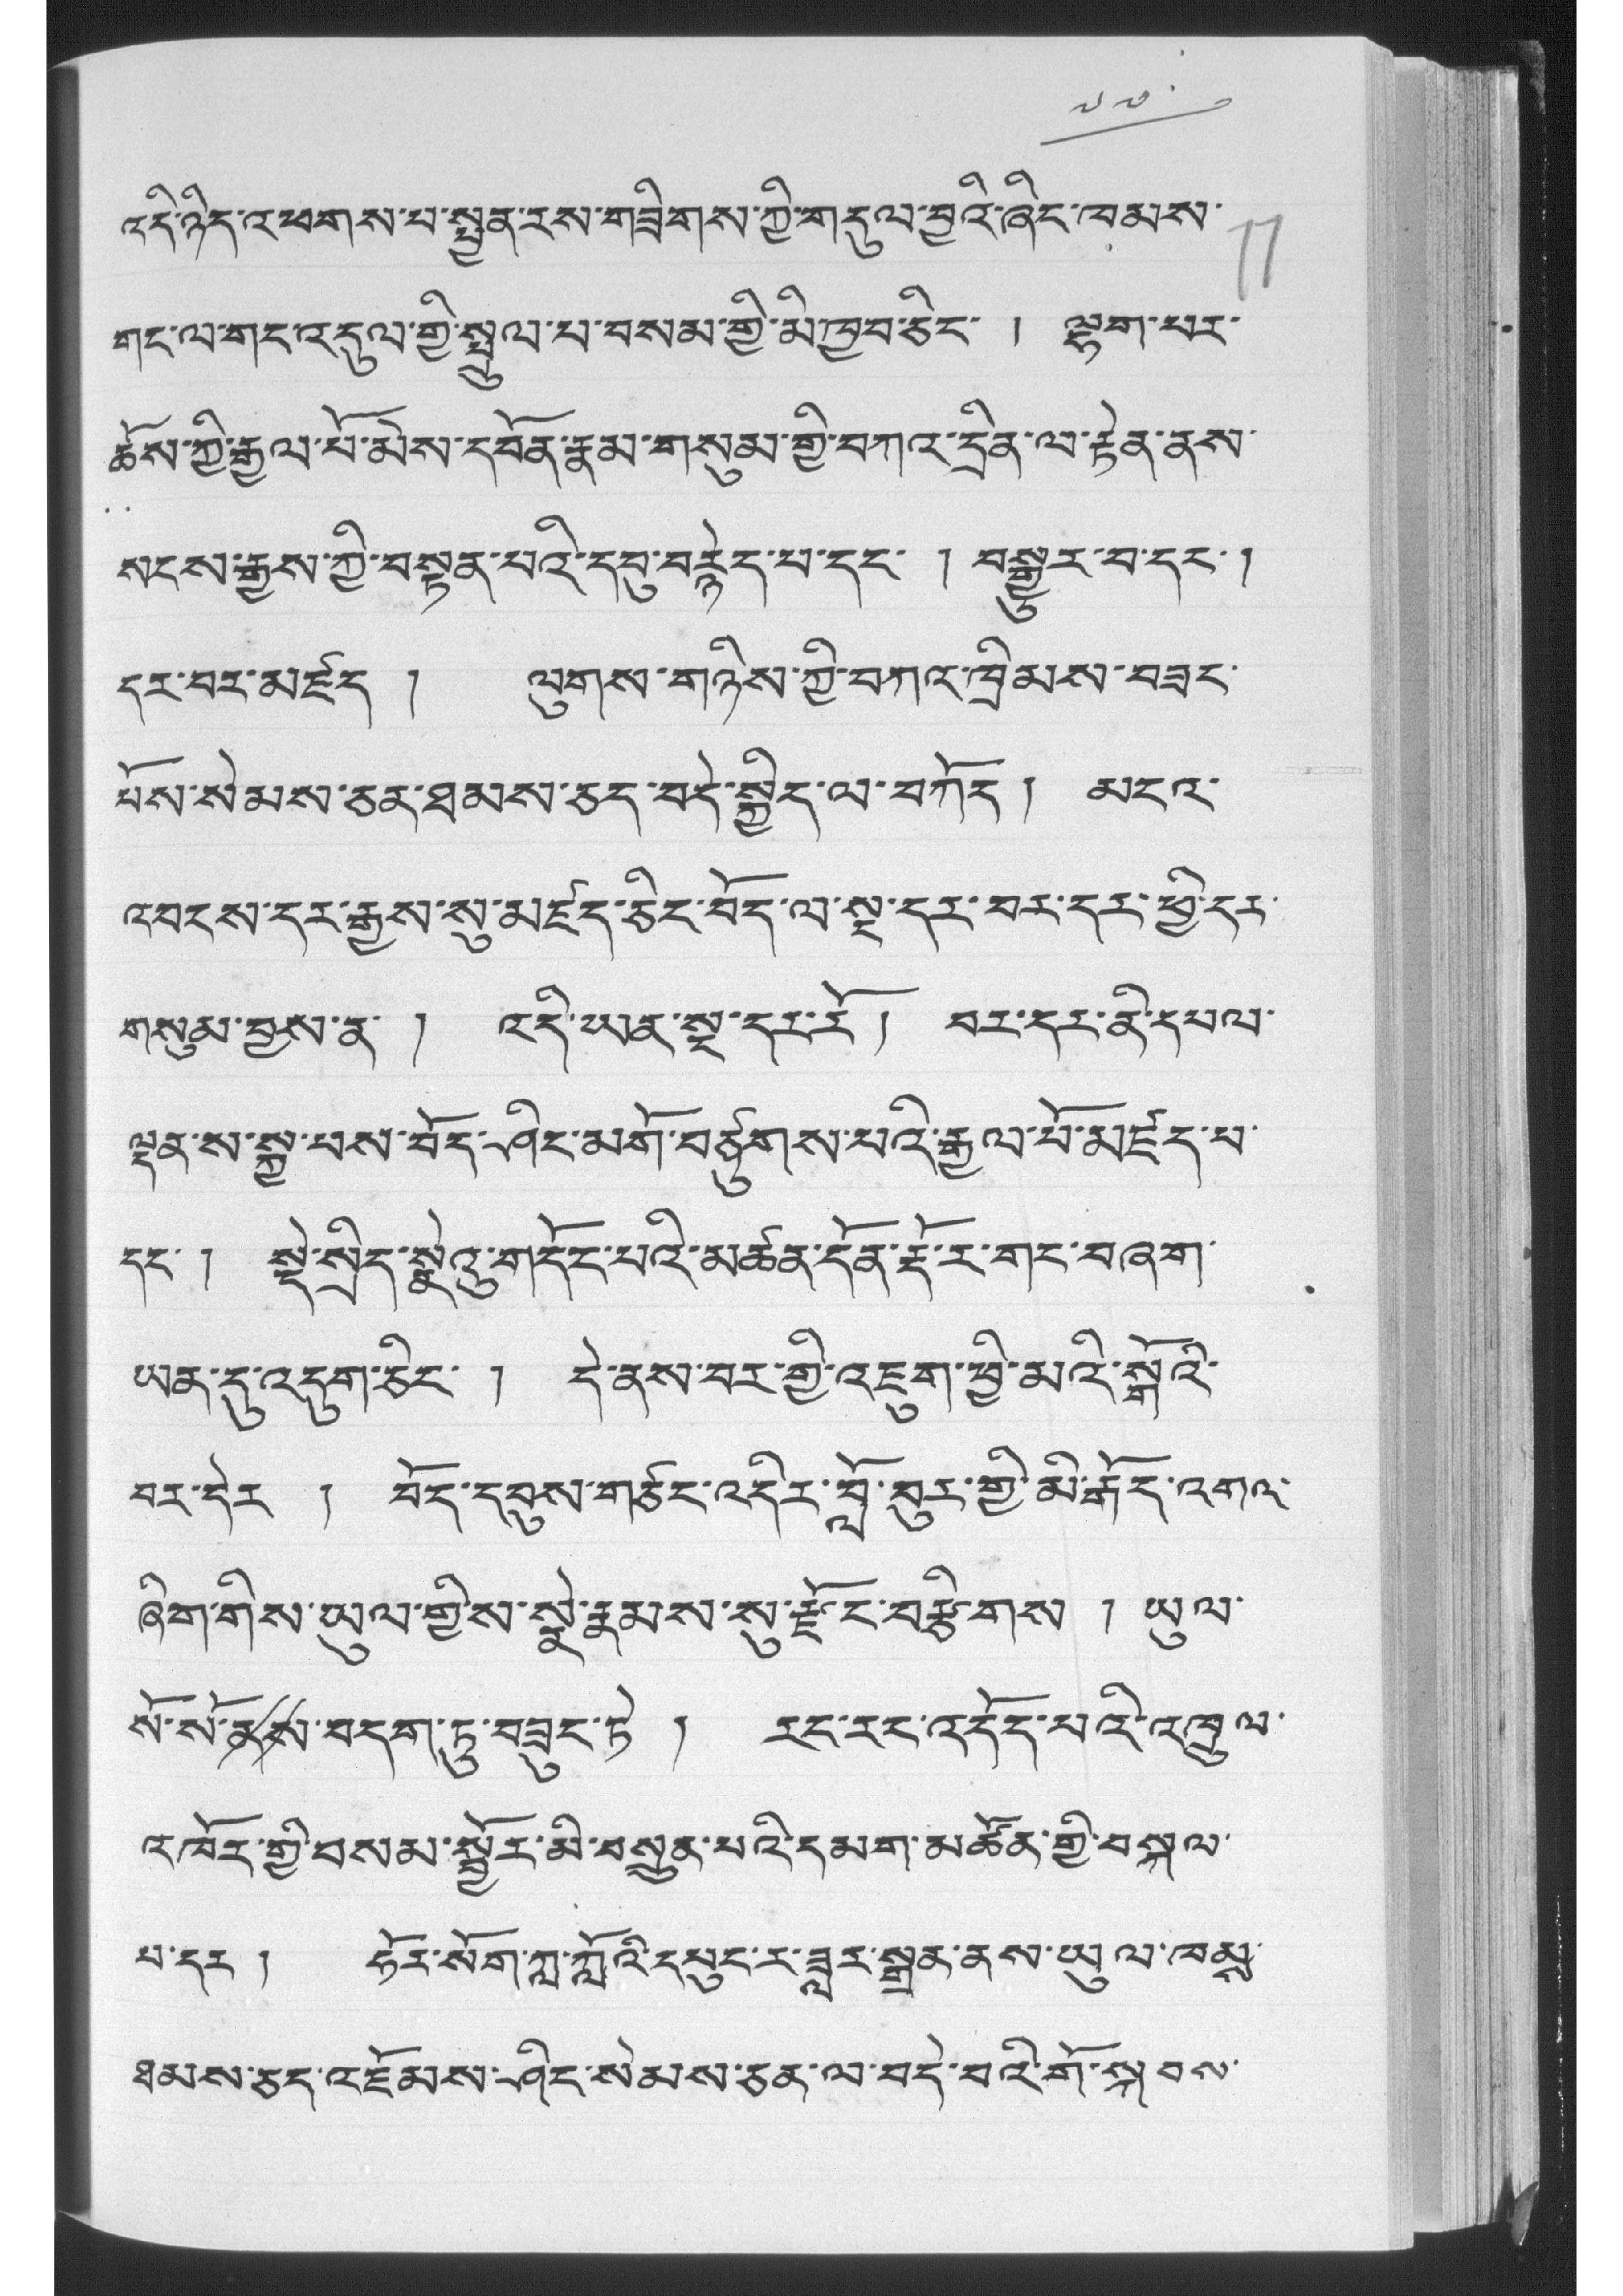 ༡༡
11
འདི་ཉིད་འཕགས་པ་སྤྱན་རས་གཟིགས་ཀྱི་གདུལ་བྱའི་ཞིང་ཁམས་
གང་ལ་གང་འདུལ་གྱི་སྤྲུལ་པ་བསམ་གྱི་མི་ཁྱབ་ཅིང་ ། ལྷག་པར་
ཆོས་ཀྱི་རྒྱལ་པོ་མེས་དབོན་རྣམ་གསུམ་གྱི་བཀའ་དྲིན་ལ་རྟེན་ནས་
སངས་རྒྱས་ཀྱི་བསྟན་པའི་དབུ་བརྙེད་པ་དང་ ། བསྒྱུར་བ་དང་ །
དར་བར་མཛད ། ལུགས་གཉིས་ཀྱི་བཀའ་ཁྲིམས་བཟང་
པོས་སེམས་ཅན་ཐམས་ཅད་བདེ་སྐྱིད་ལ་བཀོད ། མངའ་
འབངས་དར་རྒྱས་སུ་མཛད་ཅིང་བོད་ལ་སྔ་དར་བར་དར་ཕྱི་དར་
གསུམ་བྱས་ན ། འདི་ཡན་སྔ་དར་རོ། བར་དར་ནི་དཔལ་
ལྡན་ས་སྐྱ་པས་བོད་ཤིང་མགོ་བཙུགས་པའི་རྒྱལ་པོ་མཛད་པ་
དང་ ། སྡེ་སྲིད་སྣེའུ་གདོང་པའི་མཚན་དོན་རྡོ་ར་གང་བཞག་
ཡན་དུ་འདུག་ཅིང་ ། དེ་ནས་བར་གྱི་འཇུག་ཕྱི་མའི་སྒོའི་
བར་དེར ། བོད་དབུས་གཙང་འདིར་བློ་བུར་གྱི་མི་རྒོད་འགའ་
ཞིག་གིས་ཡུལ་གྱིས་སྣེ་རྣམས་སུ་རྫོང་བརྩིགས ། ཡུལ་
སོ་སོ་ནས་བདག་ཏུ་བཟུང་ཏེ ། རང་རང་འདོད་པའི་འཁྲུལ་
འཁོར་གྱི་བསམ་སྦྱོར་མི་བསྲུན་པའི་དམག་མཚོན་གྱི་བསྐལ་
པ་དར ། ཧོར་སོག་ཀླ་ཀློའི་དཔུང་ར་ཟླར་སྒྲན་ནས་ཡུལ་ཁམས་
ཐམས་ཅད་འཇོམས་ཤིང་སེམས་ཅན་ལ་བདེ་བའི་གོ་སྐབས་